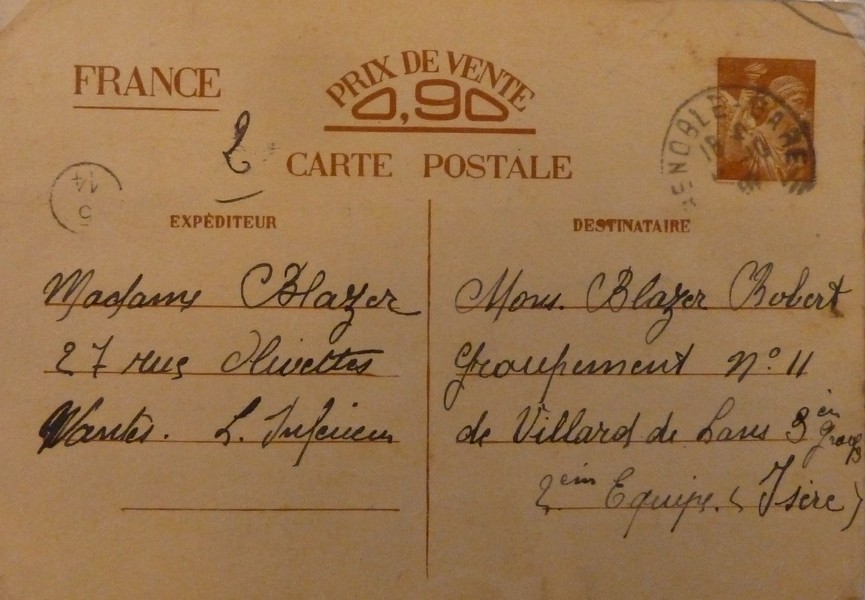 FRANCE
PRIX DE VENTE
0,90
2
CARTE POSTALE
GRENOBLE GARE
18
5
14
EXPÉDITEUR
DESTINATAIRE
Madame Blazer
27 rue Olivettes
Nantes. L. Inférieure
Mons. Blazer Robert
Groupement N° 11
de Villard de Lans 3èm Group
2èm Equipe. (Isère)